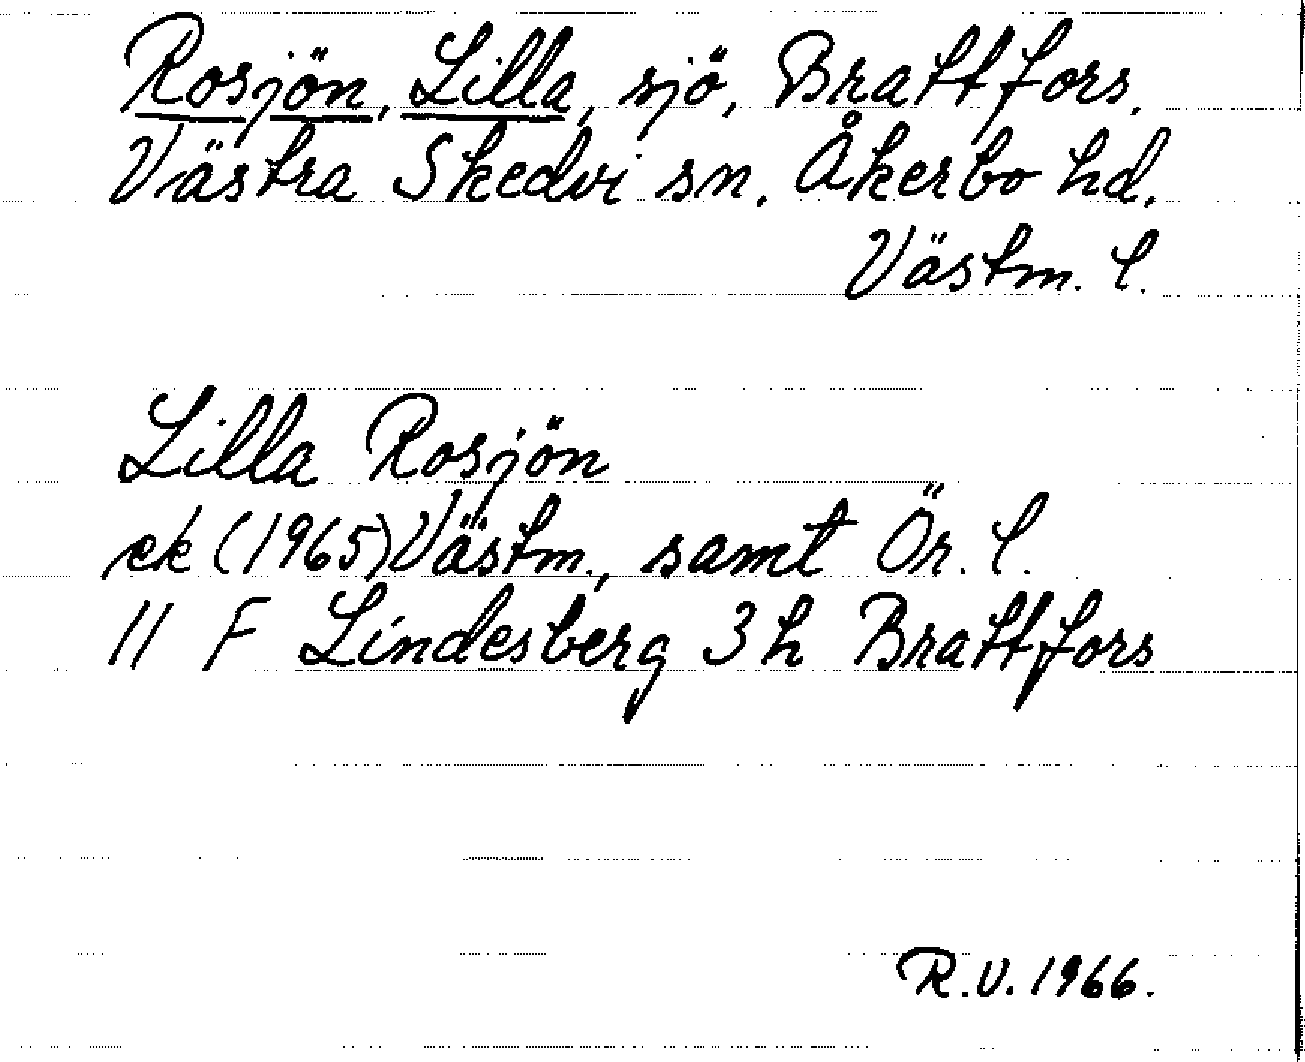 Rosjön, Lilla, sjö, Brattfors.
Västra Skedvi sn. Åkerbo hd.
Västm. l.
Lilla Rosjön
ek (1965) Västm., samt Ör. l.
11 F Lindesberg 3 h Brattfors
R.V. 1966.